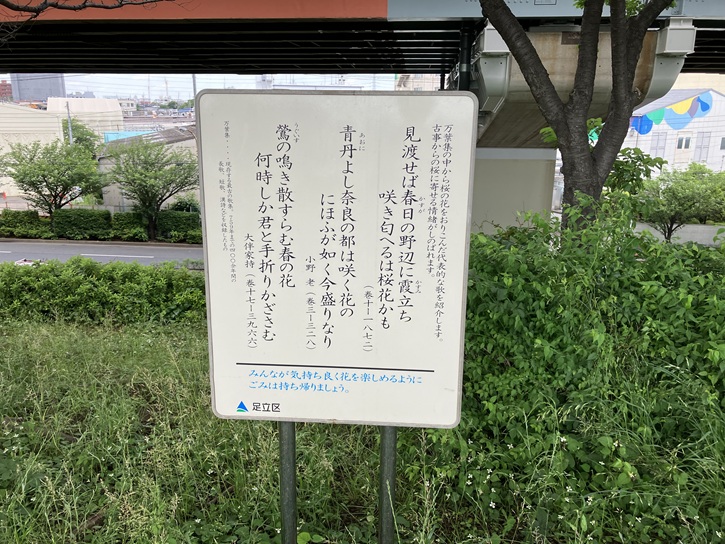 万葉集の中から桜の花をおりこんだ代表的な歌を紹介します。
古事からの桜に寄せる情緒がしのばれます。
見渡せば春日の野辺に霞立ち
かすが
かすみ
咲き匂へるは桜花かも
（巻十－一八七二）
青丹よし奈良の都は咲く花の
あおに
にほふが如く今盛りなり
小野 老（巻三－三二八）
鶯の鳴き散すらむ春の花
うぐいす
何時しか君と手折りかざさむ
大伴家持（巻十七－三九六六）
みんなが気持ち良く花を楽しめるように
ごみは持ち帰りましょう。
足立区